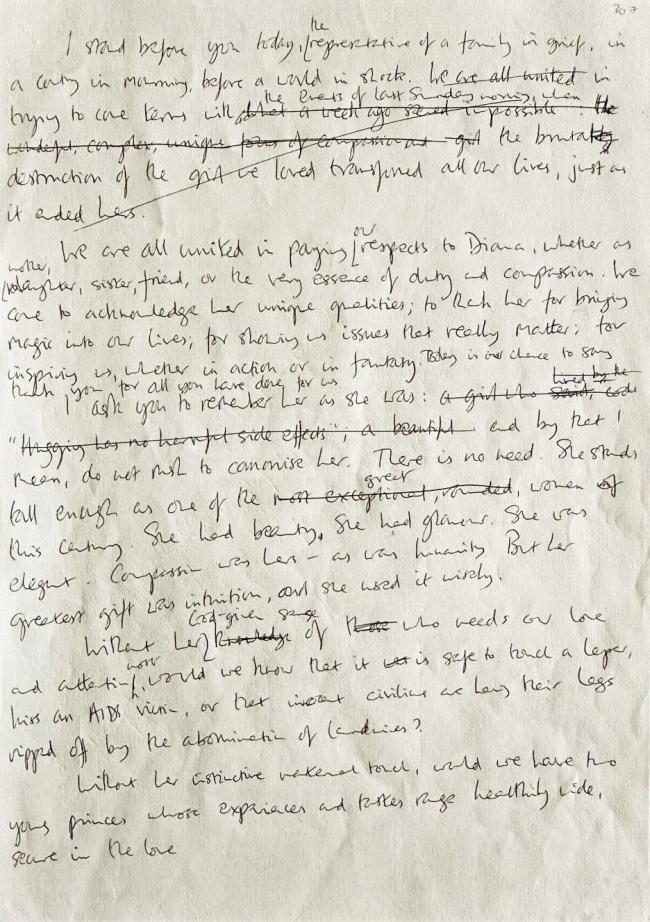 307
the
I stand before you today, [representative of a family in grief, in
a country in mourning, before a world in shock. We are all united in
the events of last Sunday morning, when
trying to come terms with what a week ago seemed impossible. the
wonderful, complex, unique force of compassion and girl the brutal
destruction of the girl we loved transformed all our lives, just as
it ended hers.
our
We are all united in paying [respects to Diana, whether as
mother,
daughter, sister, friend, or the very essence of duty and compassion. We
come to acknowledge her unique qualities; to thank her for bringing
magic into our lives; for showing us issues that really matter; for
inspiring us, whether in action or in fantasy. Today is our chance to say
thank you for all you have done for us
lived by the
I ask you to remember her as she was: a girl who said, code
"Hugging has no harmful side effects"; a beautiful and by that I
mean, do not rush to canonise her. There is no need. She stands
great
tall enough as one of the most exceptional, rounded, women of
this century. She had beauty, She had glamour. She was
elegant. Compassion was hers – as was humanity. But her
greatest gift was intuition, and she used it wisely.
God-given sense
Without her [knowledge of those who needs our love
most
and attention, would we know that it was is safe to touch a leper,
kiss an AIDS victim, or that innocent civilians are having their legs
ripped off by the abomination of landmines?
Without her instinctive maternal touch, would we have two
young princes whose experiences and tastes range healthily wide,
secure in the love